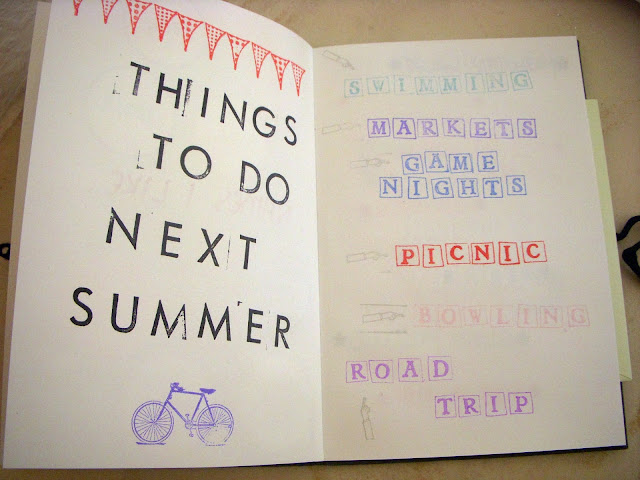 THINGS
TO DO
NEXT
SUMMER
SWIMMING
MARKETS
GAME
NIGHTS
PICNIC
BOWLING
ROAD
TRIP